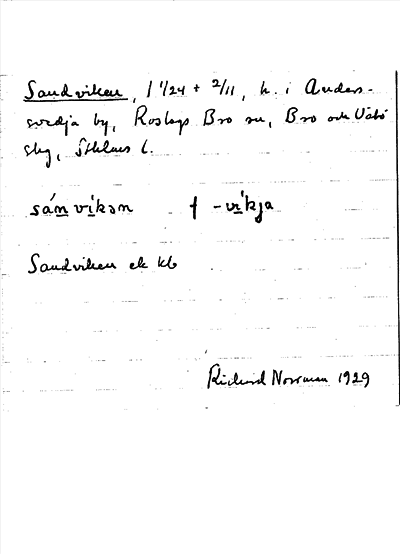 Sandviken, 1 1/24 + 2/11, h. i Anders-
svedja by, Roslags Bro sn, Bro och Vätö
skg, Sthlms l.
sánvíkən f -víkja
Sandviken ek kb
Richard Norrman 1929